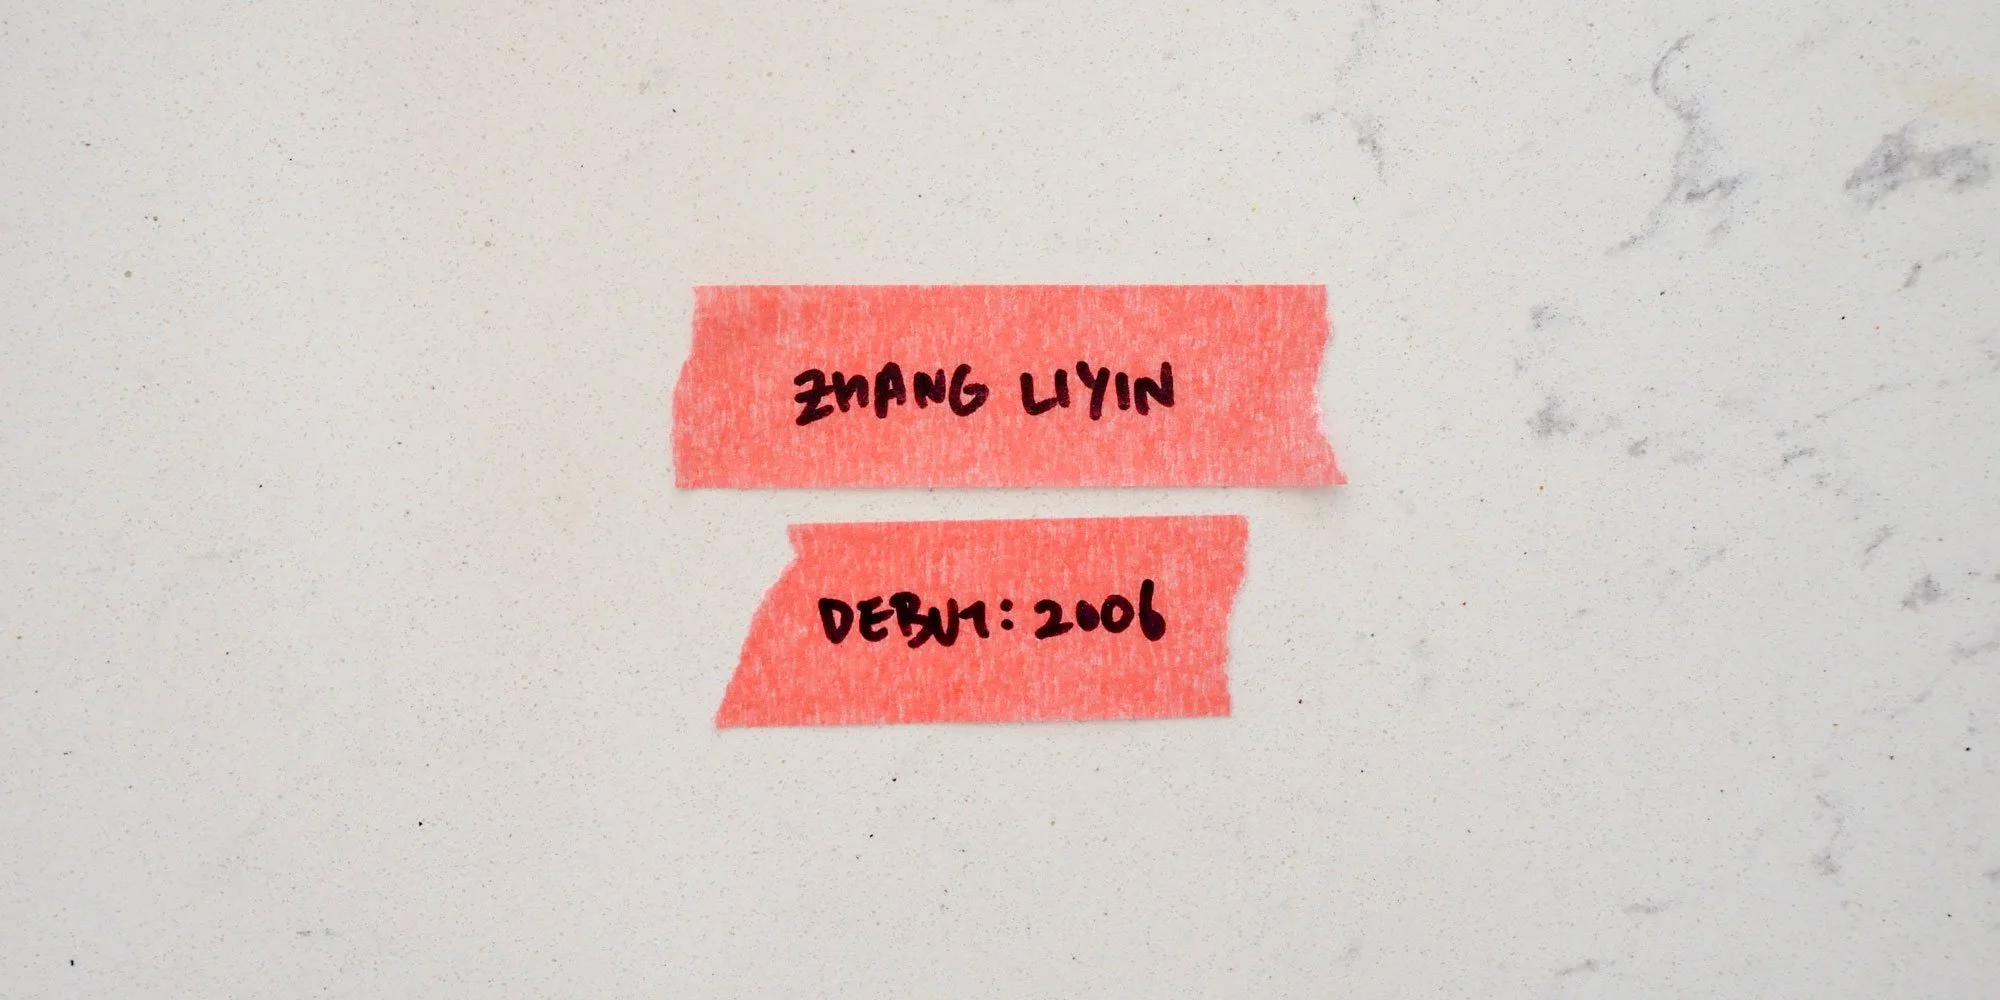 ZHANG LIYIN
DEBUT: 2006